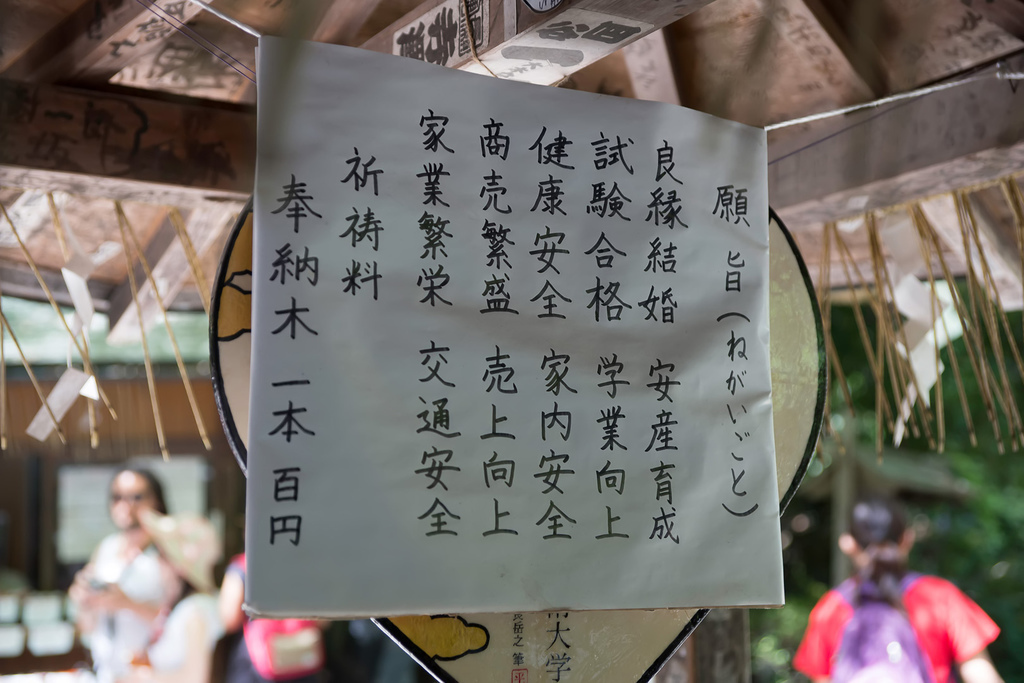 願旨(ねがいごと)
良縁結婚 安産育成
試験合格 学業向上
健康安全 家内安全
商売繁盛 売上向上
家業繁栄 交通安全
祈祷料
奉納木 一本 百円
大学
岳之筆